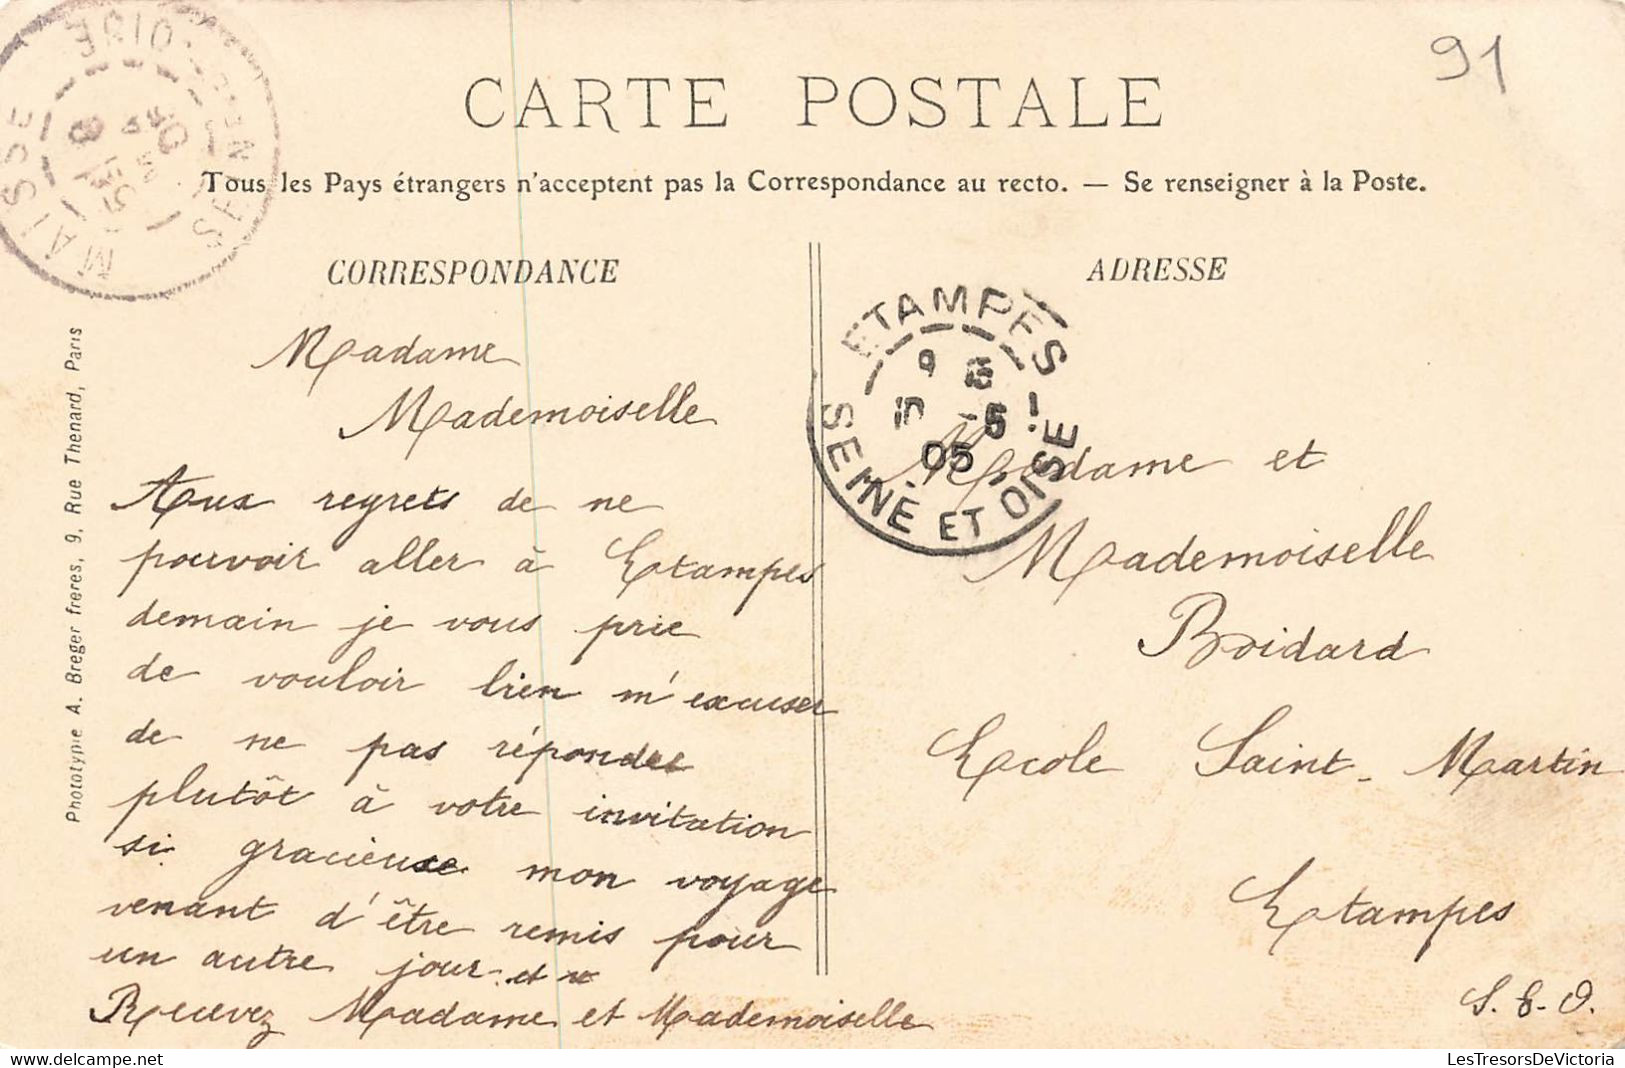 91
CARTE POSTALE
Tous les Pays étrangers n'acceptent pas la Correspondance au recto. — Se renseigner à la Poste.
MAISSE
SEINE-ET-OISE
CORRESPONDANCE
Madame
Mademoiselle
Aux regrets de ne
pouvoir aller à Etampes
demain je vous prie
de vouloir bien m'excuser
de ne pas répondre
plutôt à votre invitation
si gracieuse mon voyage
venant d'être remis pour
un autre jour. et
Recevez Madame et Mademoiselle
Phototypie A. Breger freres, 9, Rue Thenard, Paris
ADRESSE
ETAMPES
9
15 -5
05
SEINE ET OISE
Madame et
Mademoiselle
Boidard
Ecole Saint-Martin
Etampes
S.-&-O.
LesTresorsDeVictoria
www.delcampe.net